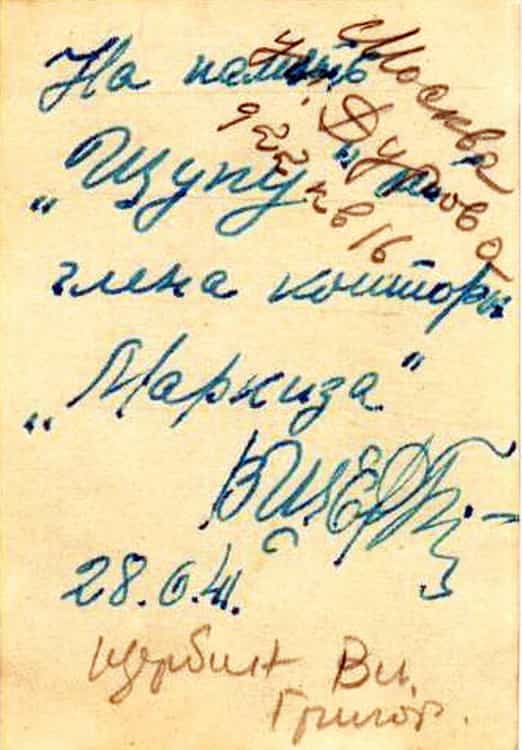 На память
„Щупу" от
члена конторы
„Маркиза"
28.6.41.
Москва
Дурова
кв 16
Щербин Вл.
Григор.